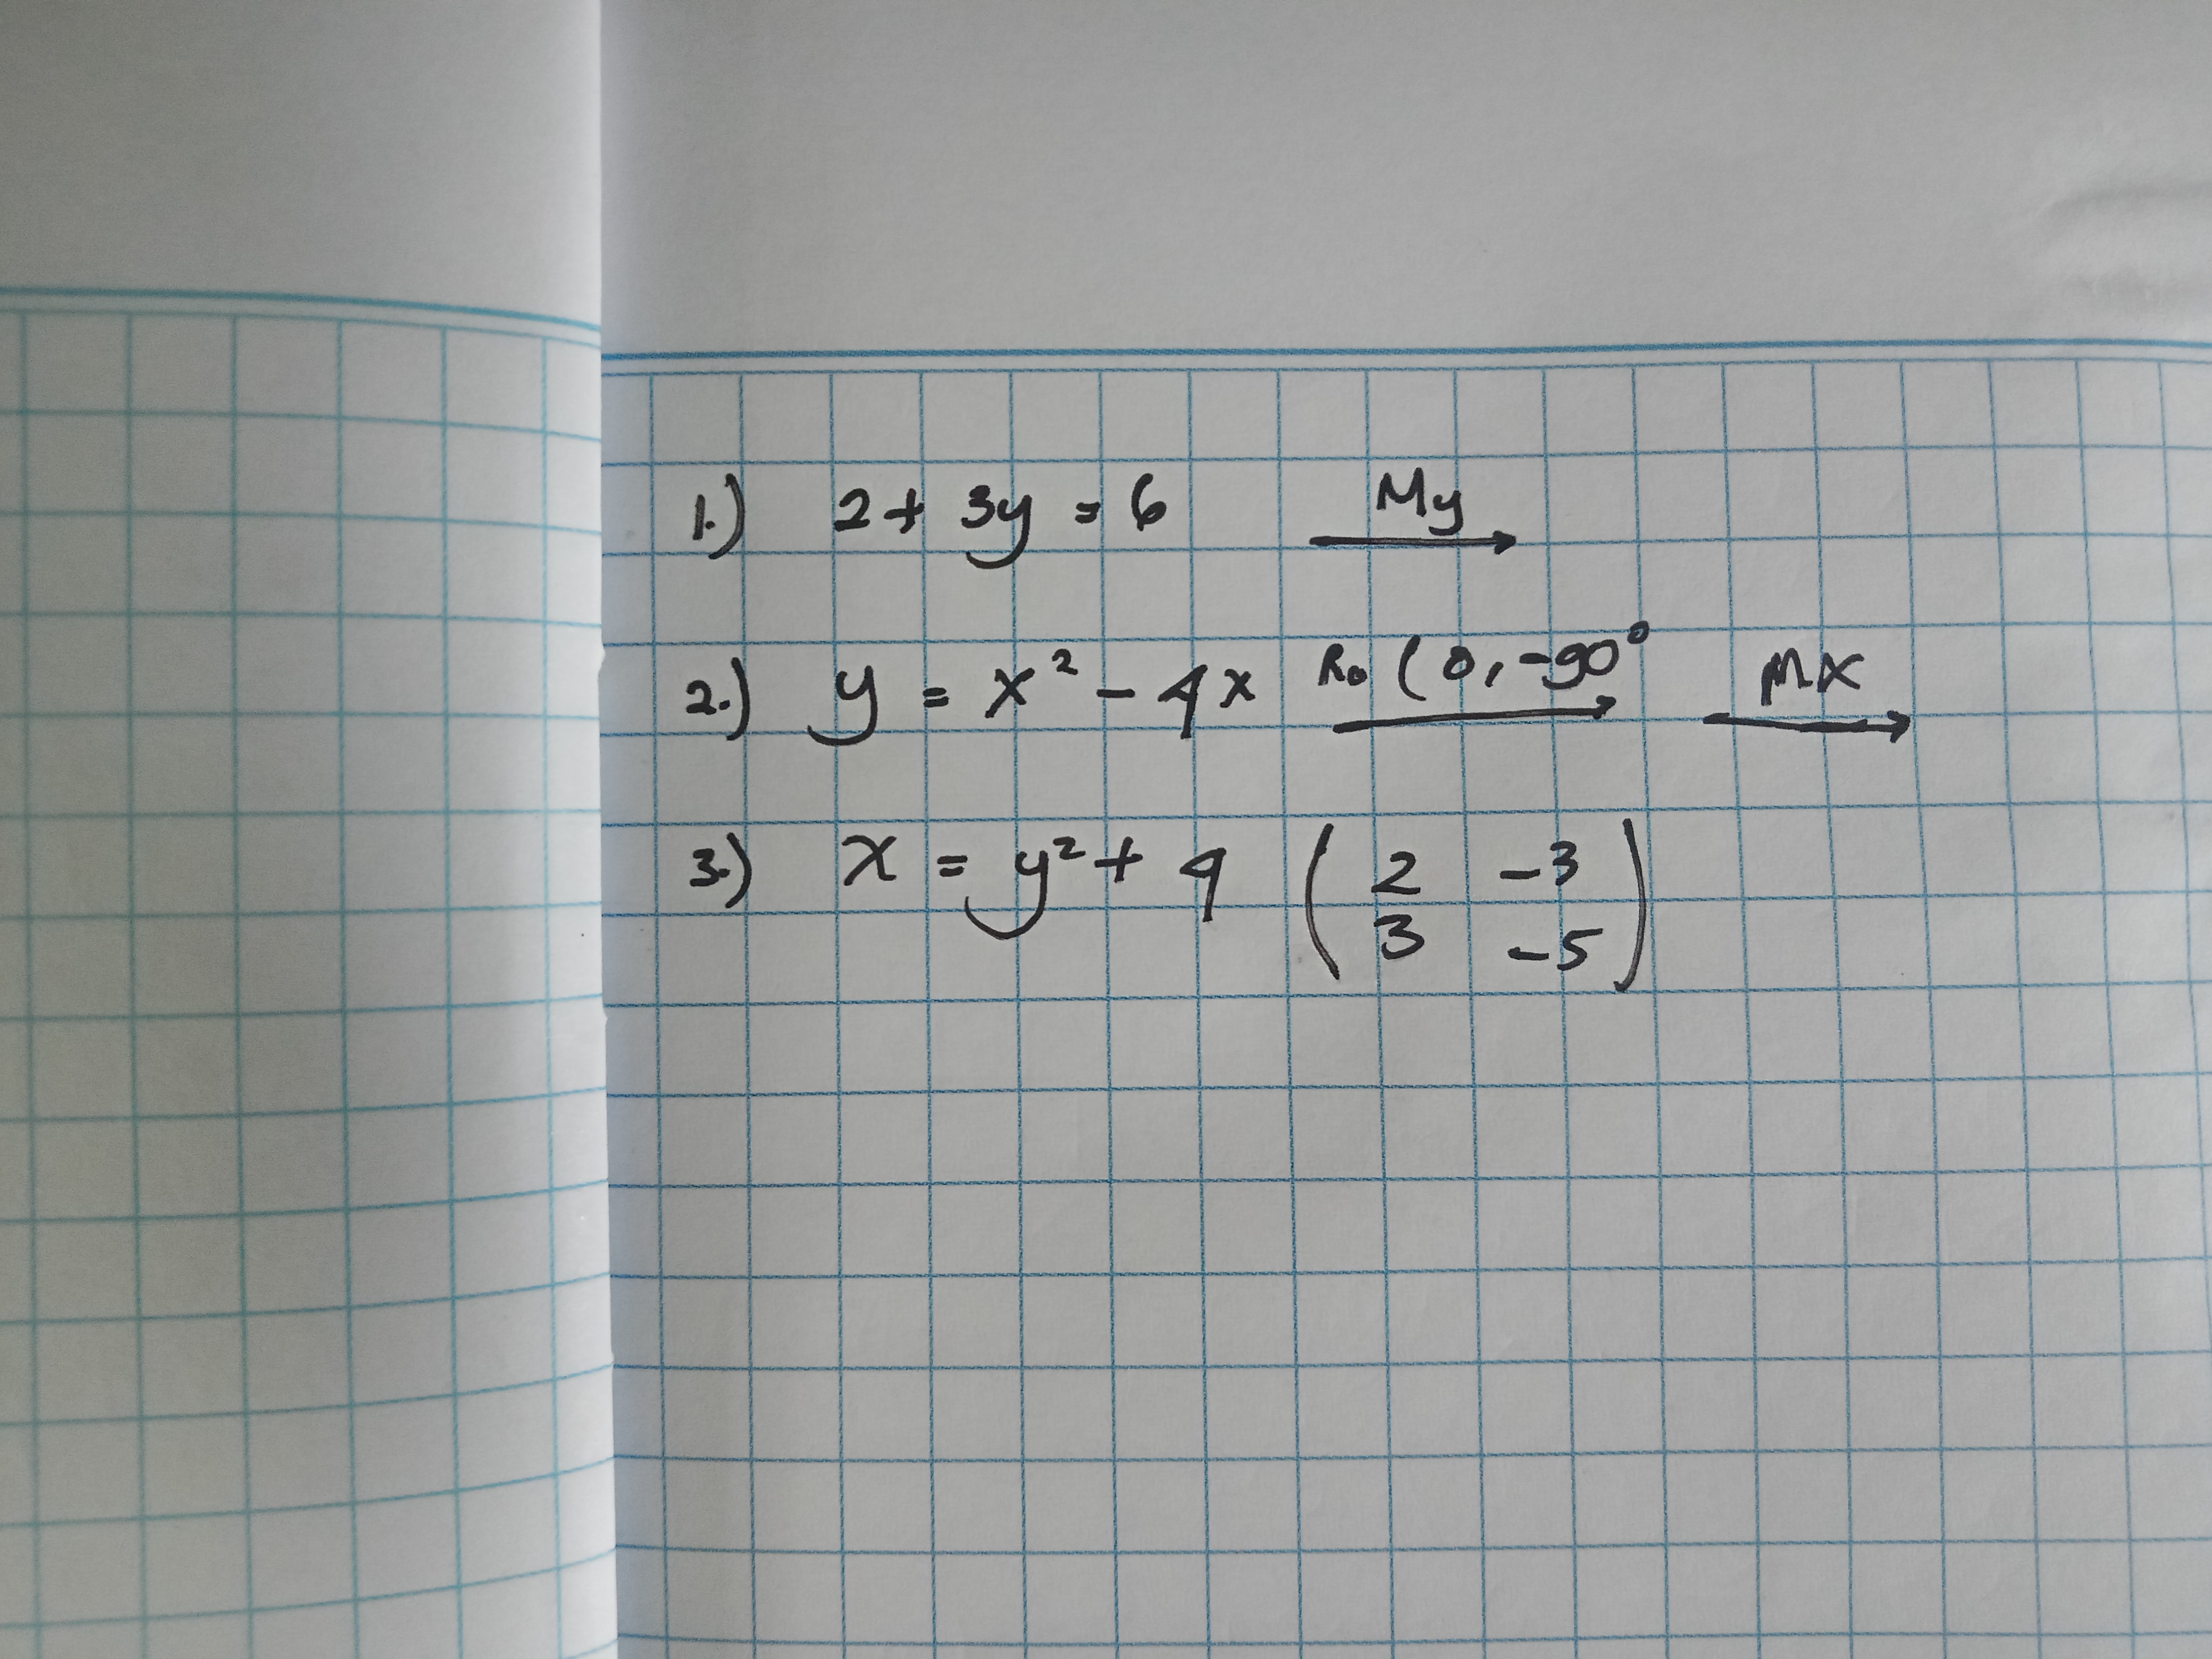 1.) 2 + 3y = 6 My →
2.) y = x² - 4x Ro (0, -90° → MX →
3.) x = y² + 4 ( 2 -3
3 -5 )